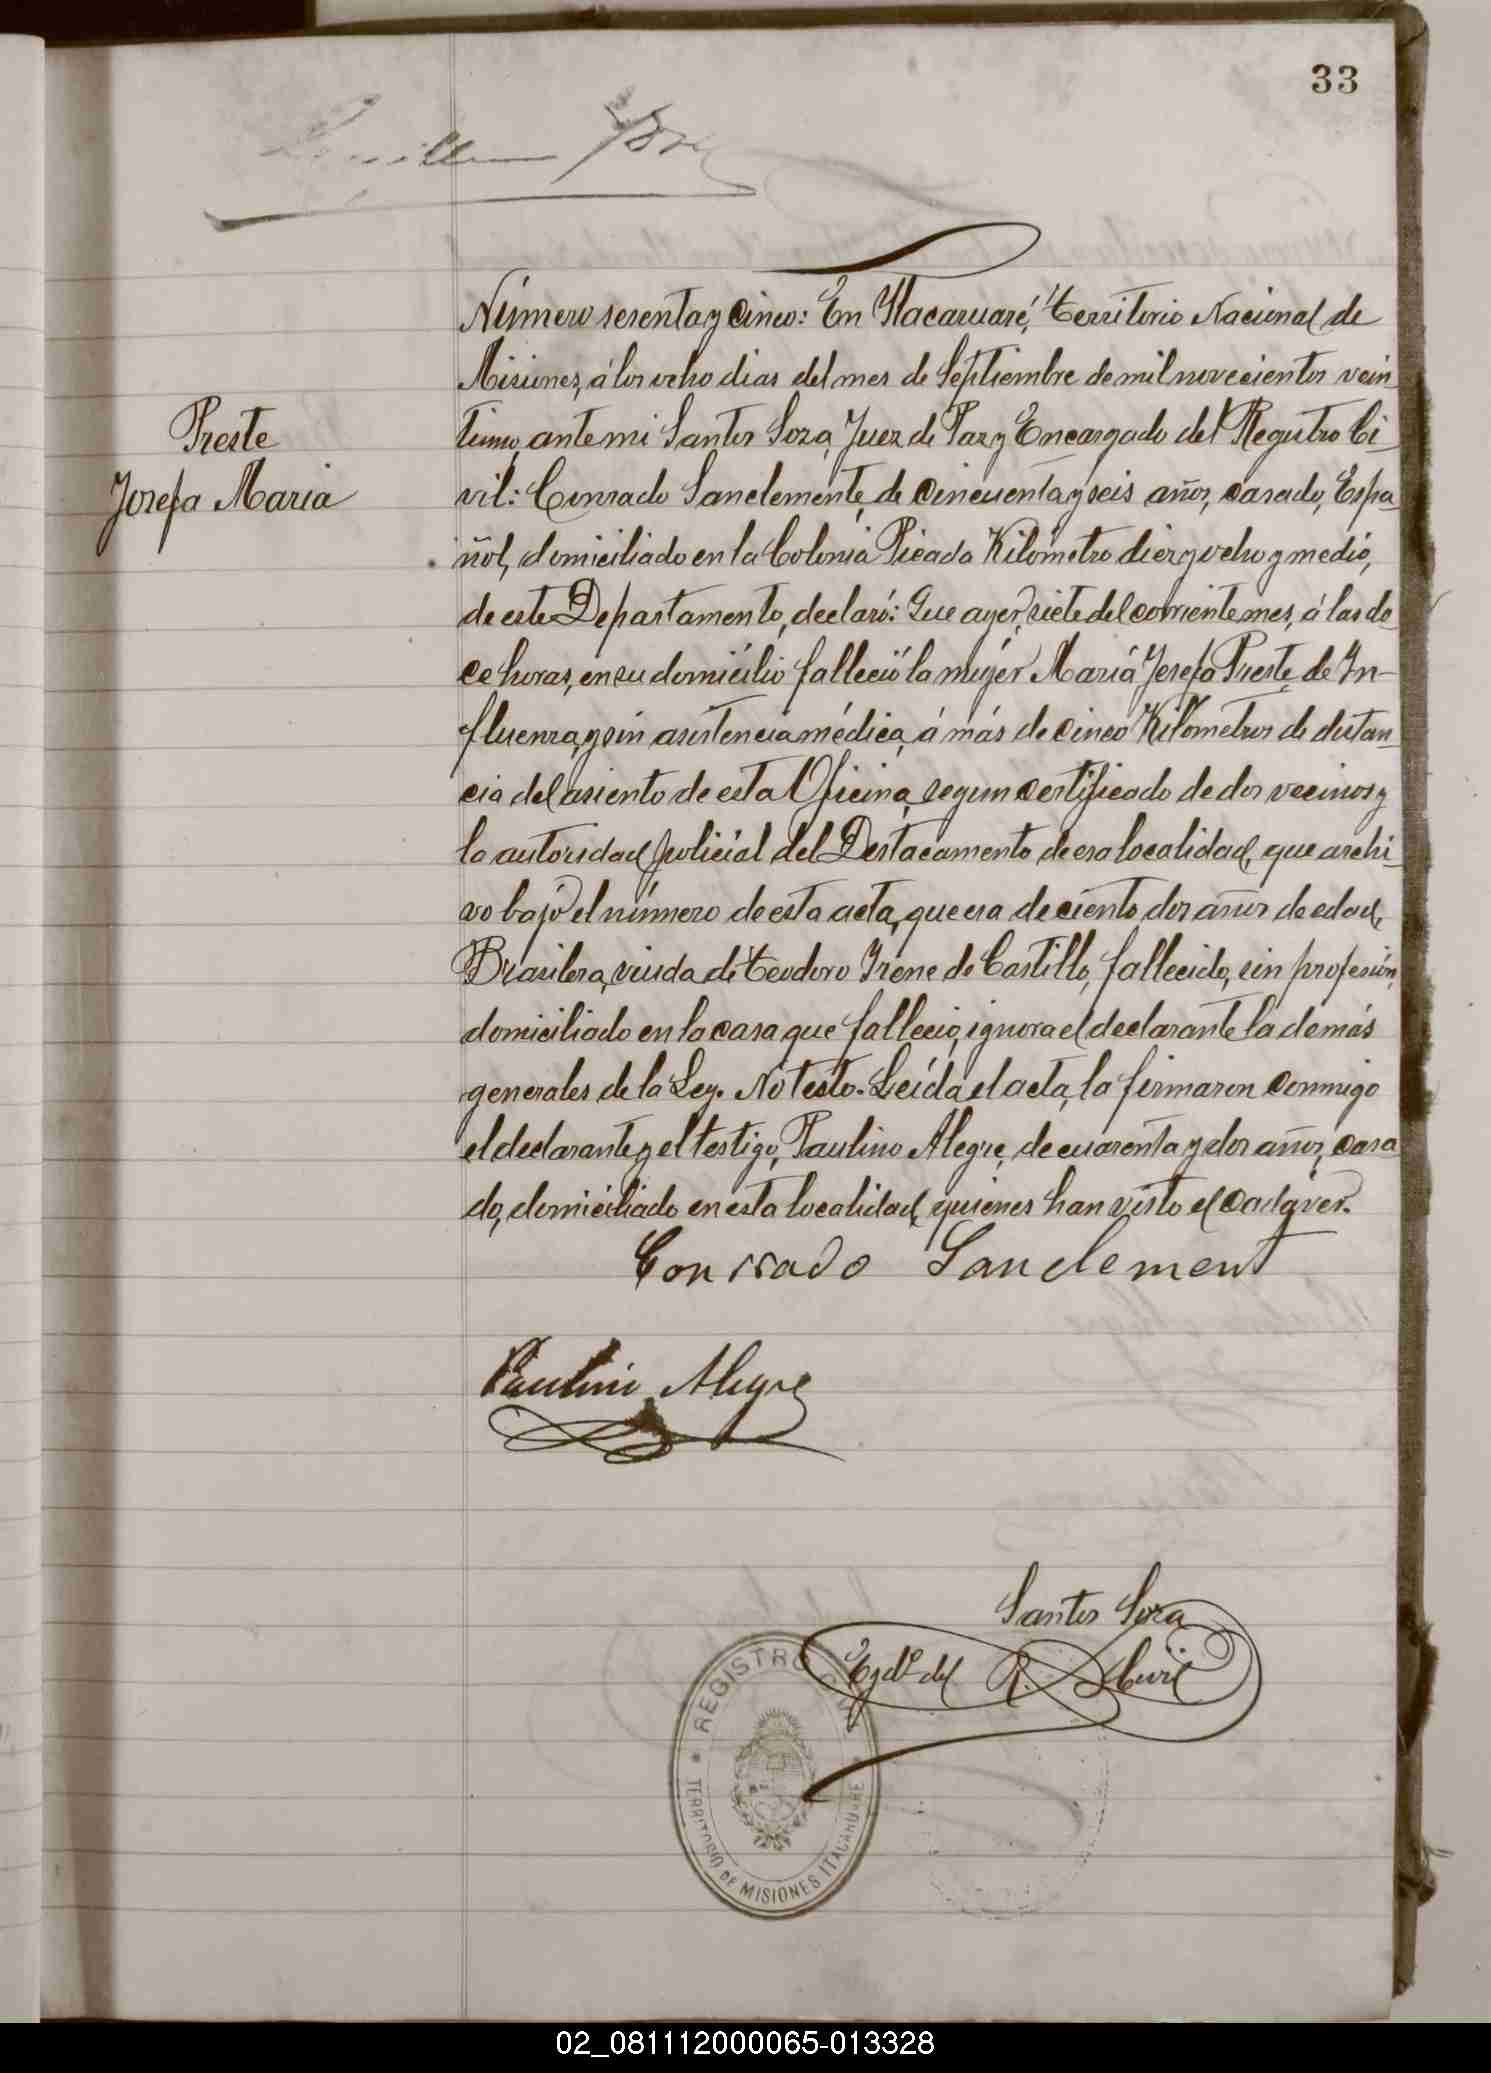 33
Número sesenta y cinco: En Itacaruaré, Territorio Nacional de
Misiones, á los ocho dias del mes de Septiembre de mil novecientos vein
Preste
tiuno, ante mi Santos Soza, Juez de Paz y Encargado del Registro Ci-
Josefa Maria
vil: Conrado Sanclemente, de cincuenta y seis años, casado, Espa-
ñol, domiciliado en la Colonia Picada Kilómetro diez y ocho y medio,
de este Departamento, declaró: Que ayer, siete del corriente mes, á las do-
ce horas, en su domicilio falleció la mujer Maria Josefa Preste, de In-
fluenza, y sin asistencia médica, á más de cinco Kilómetros de distan-
cia del asiento de esta Oficina, segun certificado de dos vecinos y
la autoridad policial del Destacamento de esa localidad, que archi-
vo bajo el número de esta acta, que era de ciento dos años de edad,
Brasilera, viuda de Teodoro Irene de Castillo, fallecido, sin profesión,
domiciliado en la casa que falleció, ignora el declarante la demás
generales de la Ley. No testo. Leída el acta, la firmaron conmigo
el declarante y el testigo, Paulino Alegre, de cuarenta y dos años, casa
do, domiciliado en esta localidad, quienes han visto el cadáver.
Conrrado Sanclement
Paulino Alegre
Santos Soza
Egdo. del R. Civil
REGISTRO CIVIL
TERRITORIO DE MISIONES ITACARUARE
02_081112000065-013328